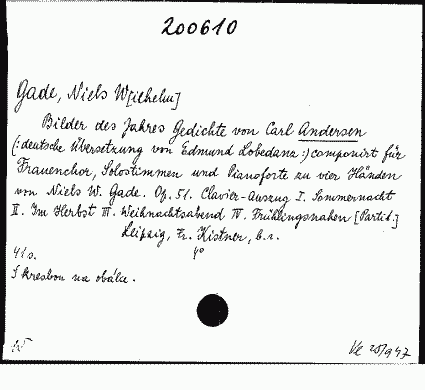 200610
Gade, Niels W[ilhelm]
Bilder des Jahres Gedichte von Carl Andersen
(:deutsche Übersetzung von Edmund Lobedanz:) componirt für
Frauenchor, Solostimmen und Pianoforte zu vier Händen
von Niels W. Gade. Op. 51. Clavier-Auszug I. Sommernacht
II. Im Herbst III. Weihnachtsabend IV. Frühlingsnahen [Partit.]
Leipzig, Fr. Kistner, b.r.
41 s. 4°
S kresbou na obálce.
Ve 25/947